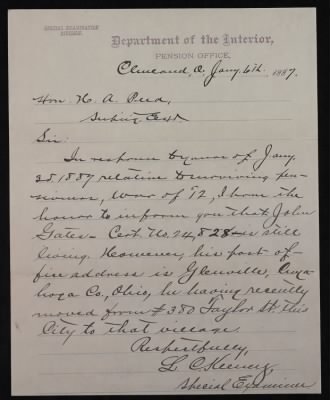 SPECIAL EXAMINATION
DIVISION.
Department of the Interior,
PENSION OFFICE,
Cleveland, O. Jany. 6th, 1887.
Hon. H. A.
Sir:
In response to yours of Jany.
3d, 1887 relative to surviving pen-
sioners, War of '12, I have the
honor to inform you that John
Gates - Cert. No. 24,828 - is still
living. However, his post of-
fice address is Glenville, Cuya-
hoga Co., Ohio, he having recently
moved from #380 Taylor St. this
City to that village.
Respectfully,
L. C.
Special Examiner